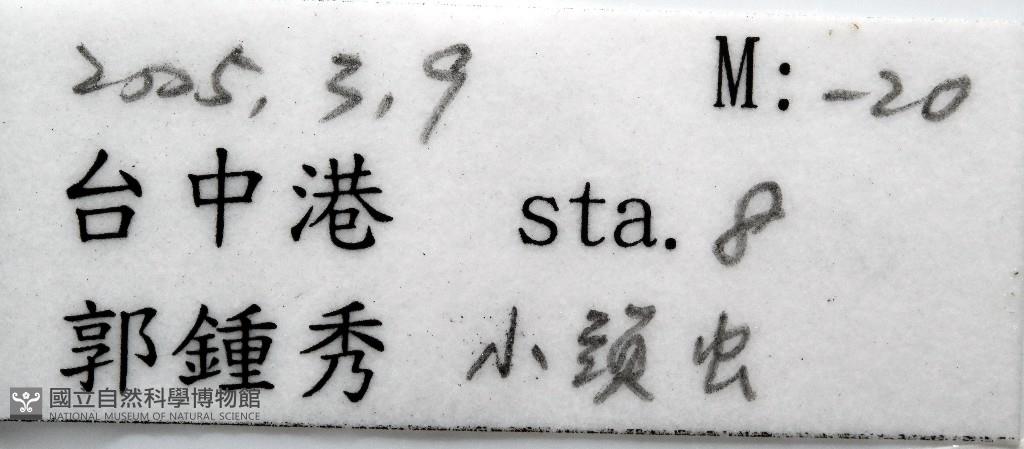 2005, 3, 9 M: -20
台中港 sta. 8
郭鍾秀 小頭虫
國立自然科學博物館
NATIONAL MUSEUM OF NATURAL SCIENCE